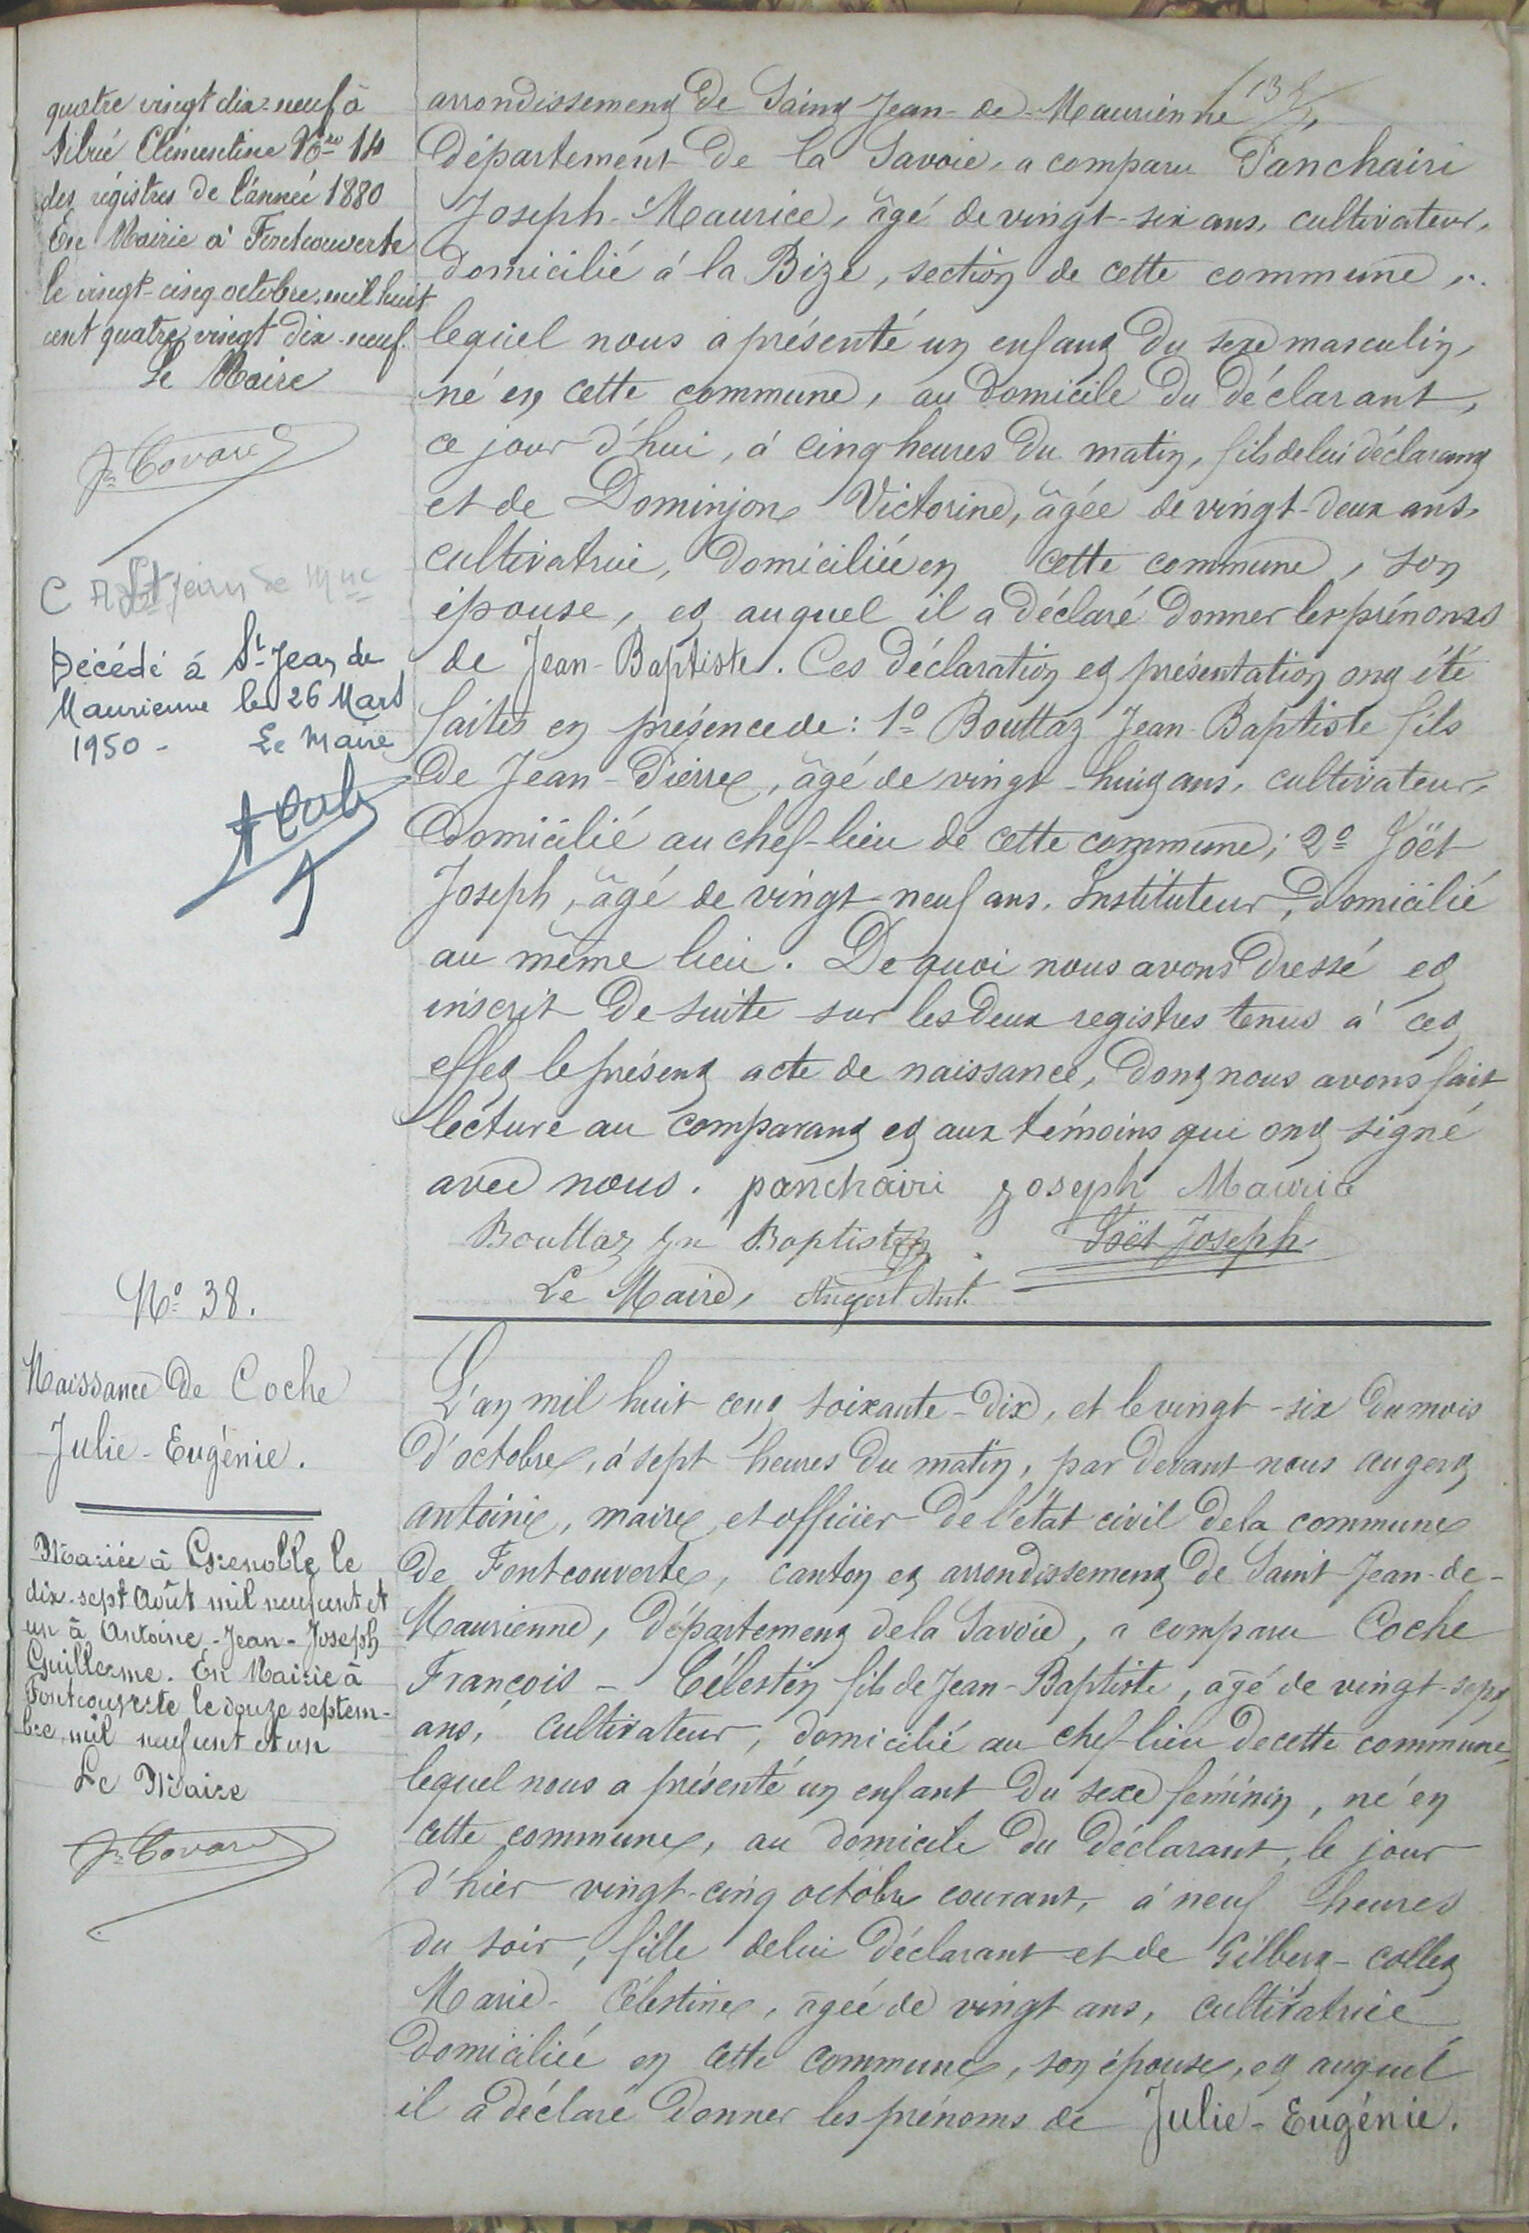 quatre vingt dix-neuf à
Clémentine No 14
des régistres de l'année 1880
En Mairie à Fontcouverte
le vingt-cinq octobre mil huit
cent quatre vingt dix-neuf.
Le Maire
C St Jean de Mne
Décédé à St-Jean de
Maurienne le 26 Mars
1950 - Le Maire
No 38.
Naissance de Coche
Julie-Eugénie.
Mariée à Grenoble le
dix-sept Août mil neuf cent et
un à Antoine-Jean-Joseph
Guillerme. En Mairie à
Fontcouverte le douze septem-
bre mil neuf cent et un
Le Maire
arrondissement de Saint Jean-de-Maurienne
département de la Savoie, a comparu Panchairi
Joseph-Maurice, âgé de vingt-six ans, cultivateur,
domicilié à la Bize, section de cette commune,
lequel nous a présenté un enfant du sexe masculin,
né en cette commune, au domicile du déclarant,
ce jour d'hui, à cinq heures du matin, fils de lui déclarant
et de Dominjon Victorine, âgée de vingt-deux ans,
cultivatrice, domiciliée en cette commune, son
épouse, et auquel il a déclaré donner les prénoms
de Jean-Baptiste. Ces déclaration et présentation ont été
faites en présence de: 1o Bouttaz Jean-Baptiste fils
de Jean-Pierre, âgé de vingt-huit ans, cultivateur,
domicilié au chef-lieu de cette commune; 2o
Joseph, âgé de vingt-neuf ans, Instituteur, domicilié
au même lieu. De quoi nous avons dressé et
inscrit de suite sur les deux registres tenus à cet
effet le présent acte de naissance, dont nous avons fait
lecture au comparant et aux témoins qui ont signé
avec nous. panchairi joseph Maurice
Bouttaz Jn Baptiste Joseph
Le Maire, Augert Ant.
L'an mil huit cent soixante-dix, et le vingt-six du mois
d'octobre, à sept heures du matin, par devant nous augert
antoine, maire, et officier de l'état civil de la commune
de Fontcouverte, canton et arrondissement de Saint-Jean-de-
Maurienne, département de la Savoie, a comparu Coche
François-Célestin fils de Jean-Baptiste, âgé de vingt-sept
ans, cultivateur, domicilié au chef-lieu de cette commune,
lequel nous a présenté un enfant du sexe féminin, né en
cette commune, au domicile du déclarant, le jour
d'hier vingt-cinq octobre courant, à neuf heures
du soir, fille de lui déclarant et de Gilbert-collet
Marie-Célestine, âgée de vingt ans, cultivatrice
domiciliée en cette commune, son épouse, et auquel
il a déclaré donner les prénoms de Julie-Eugénie.